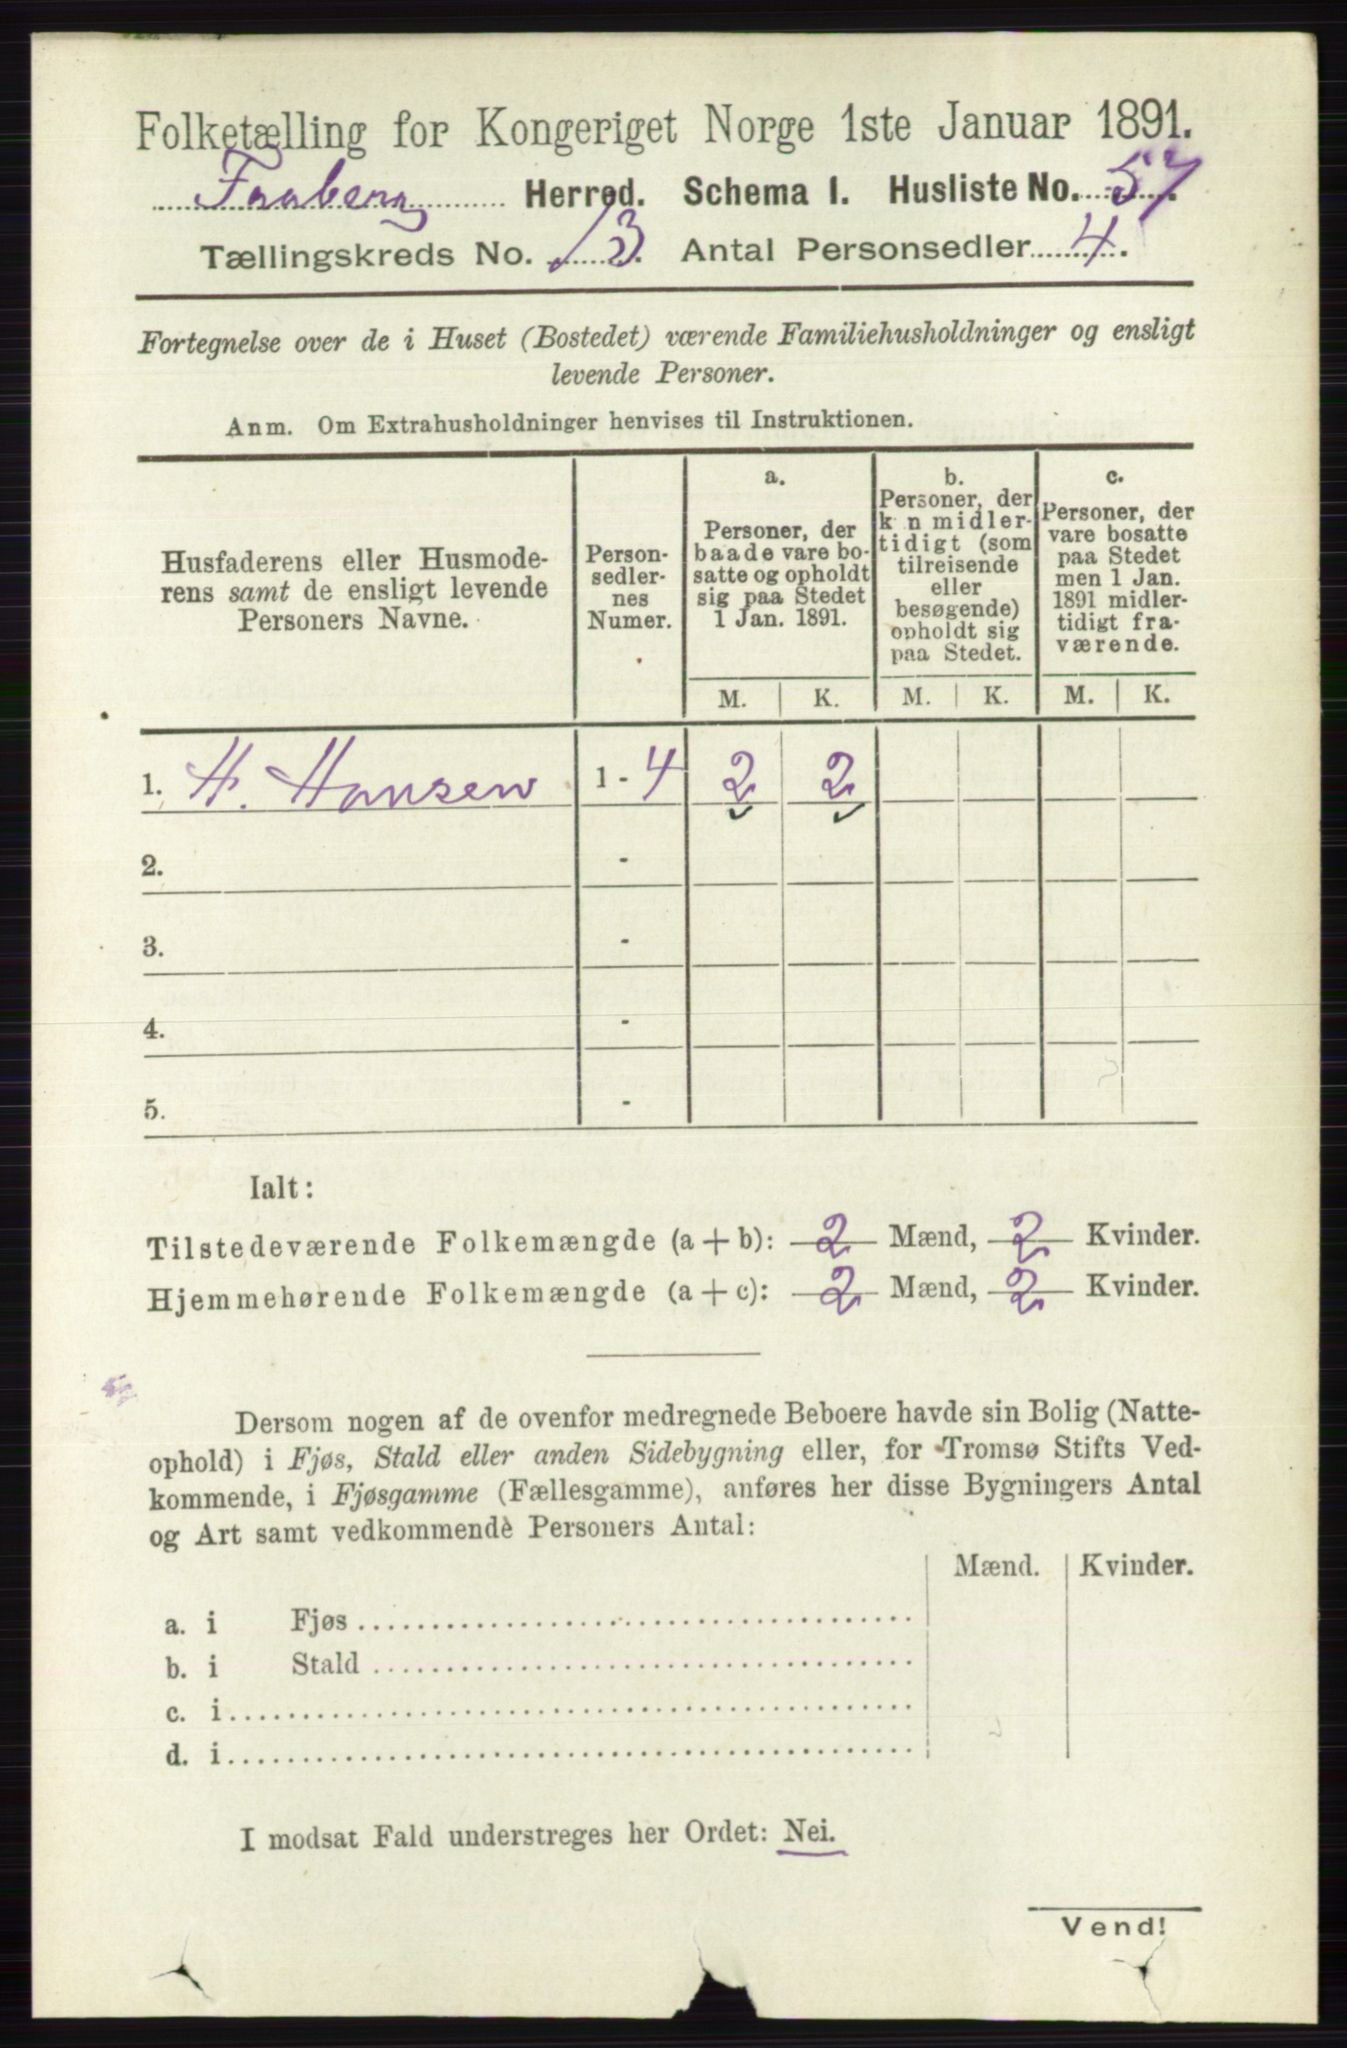 Folketælling for Kongeriget Norge 1ste Januar 1891.
Faaberg Herred. Schema I. Husliste No. 57.
Tællingskreds No. 13. Antal Personsedler 4.
Fortegnelse over de i Huset (Bostedet) værende Familiehusholdninger og ensligt
levende Personer.
Anm. Om Extrahusholdninger henvises til Instruktionen.
Husfaderens eller Husmode-
rens samt de ensligt levende
Personers Navne.
Person-
sedler-
nes
Numer.
a.
Personer, der
baade vare bo-
satte og opholdt
sig paa Stedet
1 Jan. 1891.
b.
Personer, der
kun midler-
tidigt (som
tilreisende
eller
besøgende)
opholdt sig
paa Stedet.
c.
Personer, der
vare bosatte
paa Stedet
men 1 Jan.
1891 midler-
tidigt fra-
værende.
M. K. M. K. M. K.
1. H. Hansen 1 - 4 2 2
2. -
3. -
4. -
5. -
Ialt:
Tilstedeværende Folkemængde (a + b): 2 Mænd, 2 Kvinder.
Hjemmehørende Folkemængde (a + c): 2 Mænd, 2 Kvinder.
Dersom nogen af de ovenfor medregnede Beboere havde sin Bolig (Natte-
ophold) i Fjøs, Stald eller anden Sidebygning eller, for Tromsø Stifts Ved-
kommende, i Fjøsgamme (Fællesgamme), anføres her disse Bygningers Antal
og Art samt vedkommende Personers Antal:
Mænd. Kvinder.
a. i Fjøs
b. i Stald
c. i
d. i
I modsat Fald understreges her Ordet: Nei.
Vend!